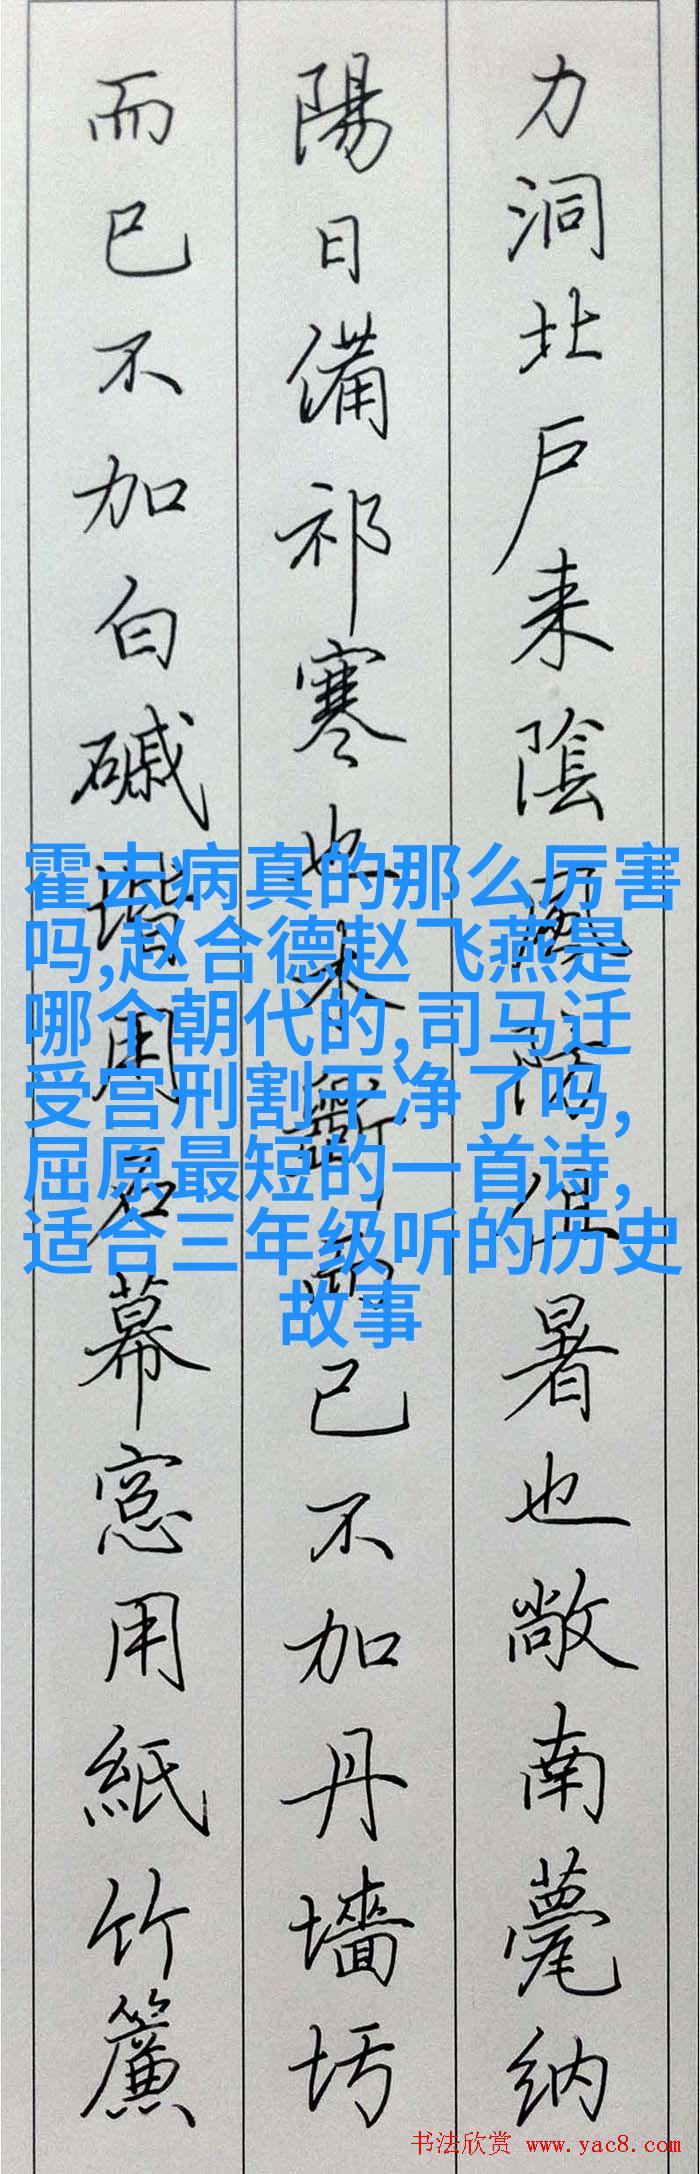 力洞北戶来陰風防徂暑也敞南甍纳
陽日備祁寒也木斲而已不加丹墻圬
而已不加白磩堦用石幕窓用紙竹簾
霍去病真的那么厉害
吗,赵合德赵飞燕是
哪个朝代的,司马迁
受宫刑割干净了吗,
屈原最短的一首诗,
适合三年级听的历史
故事
书法欣赏 www.yac8.com